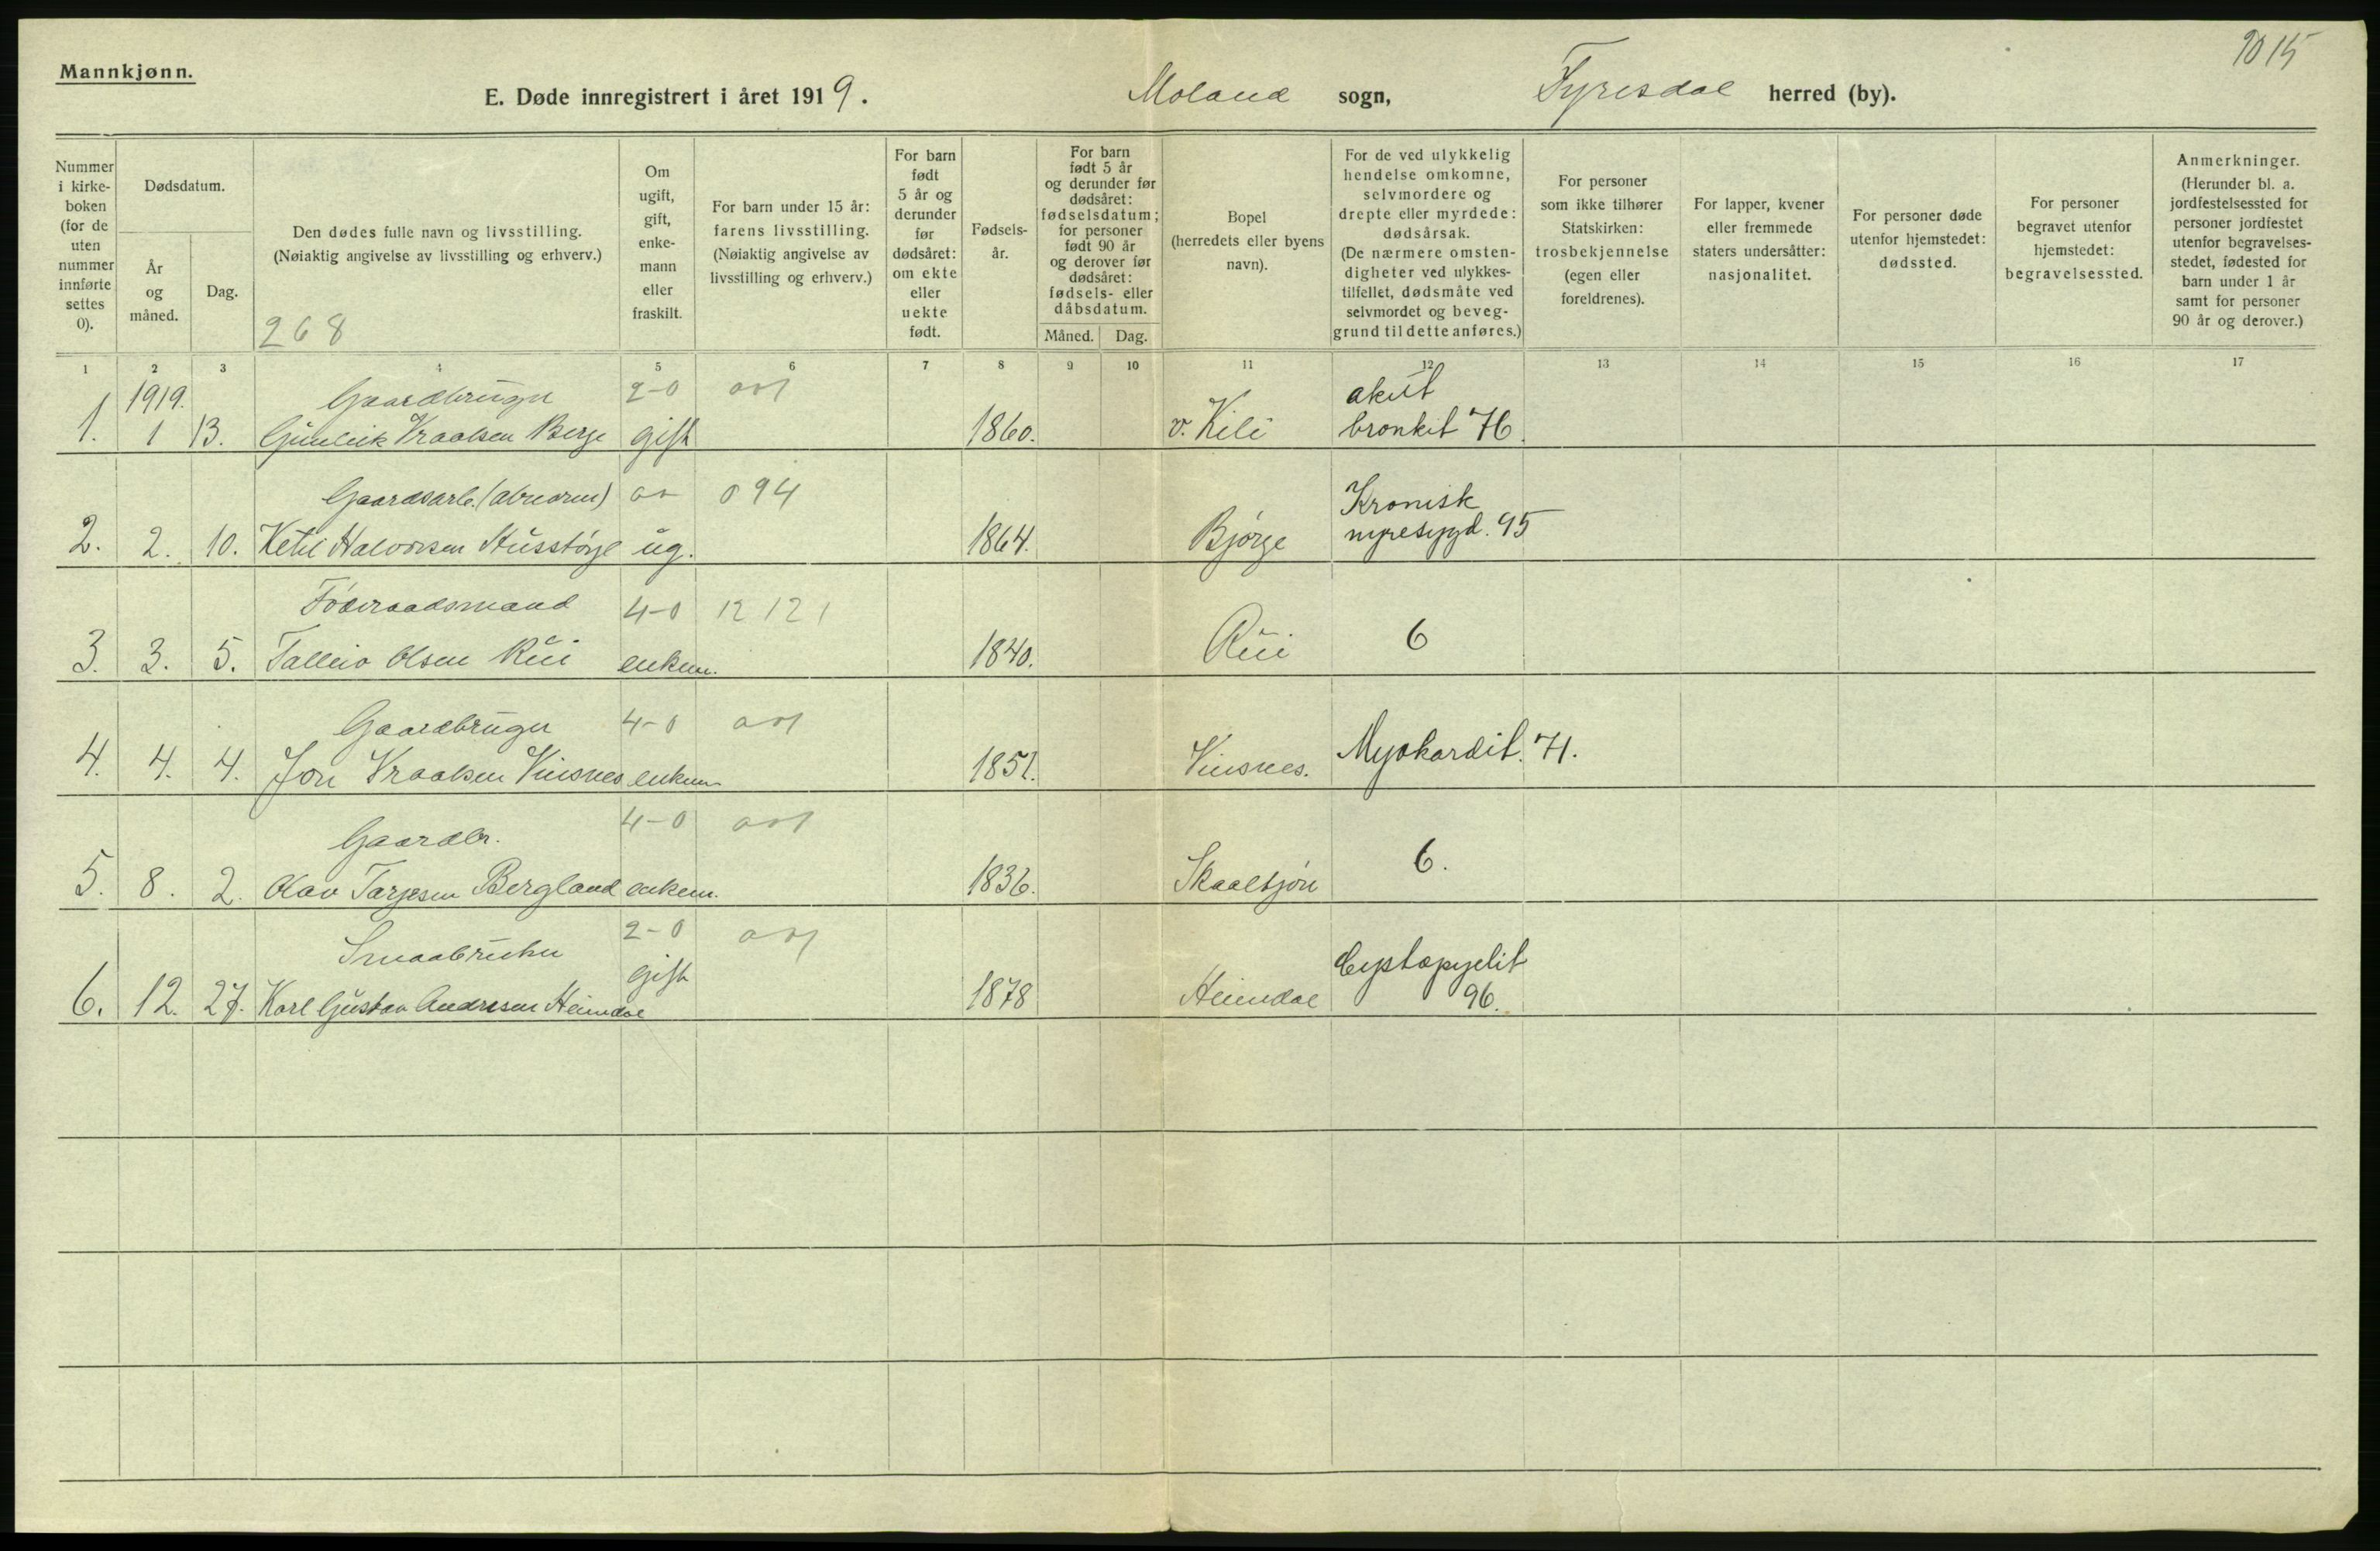 Mannkjønn.
1015
E. Døde innregistrert i året 1919. Moland sogn, Fyresdal herred (by).
Nummer i kirkeboken (for de uten nummer innførte settes 0).
Dødsdatum.
År og måned.
Dag.
Den dødes fulle navn og livsstilling.
(Nøiaktig angivelse av livsstilling og erhverv.)
268
Om ugift, gift, enkemann eller fraskilt.
For barn under 15 år: farens livsstilling.
(Nøiaktig angivelse av livsstilling og erhverv.)
For barn født 5 år og derunder før dødsåret: om ekte eller uekte født.
Fødselsår.
For barn født 5 år og derunder før dødsåret: fødselsdatum; for personer født 90 år og derover før dødsåret: fødsels- eller dåbsdatum.
Måned. Dag.
Bopel (herredets eller byens navn).
For de ved ulykkelig hendelse omkomne, selvmordere og drepte eller myrdede: dødsårsak.
(De nærmere omstendigheter ved ulykkestilfellet, dødsmåte ved selvmordet og beveggrund til dette anføres.)
For personer som ikke tilhører Statskirken: trosbekjennelse (egen eller foreldrenes).
For lapper, kvener eller fremmede staters undersåtter: nasjonalitet.
For personer døde utenfor hjemstedet: dødssted.
For personer begravet utenfor hjemstedet: begravelsessted.
Anmerkninger.
(Herunder bl. a. jordfestelsessted for personer jordfestet utenfor begravelsesstedet, fødested for barn under 1 år samt for personer 90 år og derover.)
1 2 3 4 5 6 7 8 9 10 11 12 13 14 15 16 17
1919. Gaardbruger 2-0 akut
1. 1 13. Gunleik Vraalsen Berge gift 1860. v. Kili bronkit 76.
Gaardsarb. 094 Kronisk
2. 2. 10. Ketil Halvorsen ug. 1864. Bjørge nyresygd. 95
Föderaadsmand 4-0 12 12 1
3. 3. 5. Talleiv Olsen Rui enkem. 1840. Rui 6
Gaardbruger 4-0
4. 4. 4. Jon Vraalsen Vinsnes enkem 1851. Vinsnes. Myokardit. 71.
Gaardbr. 4-0
5. 8. 2. Olav Tarjesen Bergland enkem. 1836. 6.
Smaabruker 2-0
6. 12. 27. Karl Gustav Andresen Heimdal gift 1878 Heimdal Cystopyelit 96.